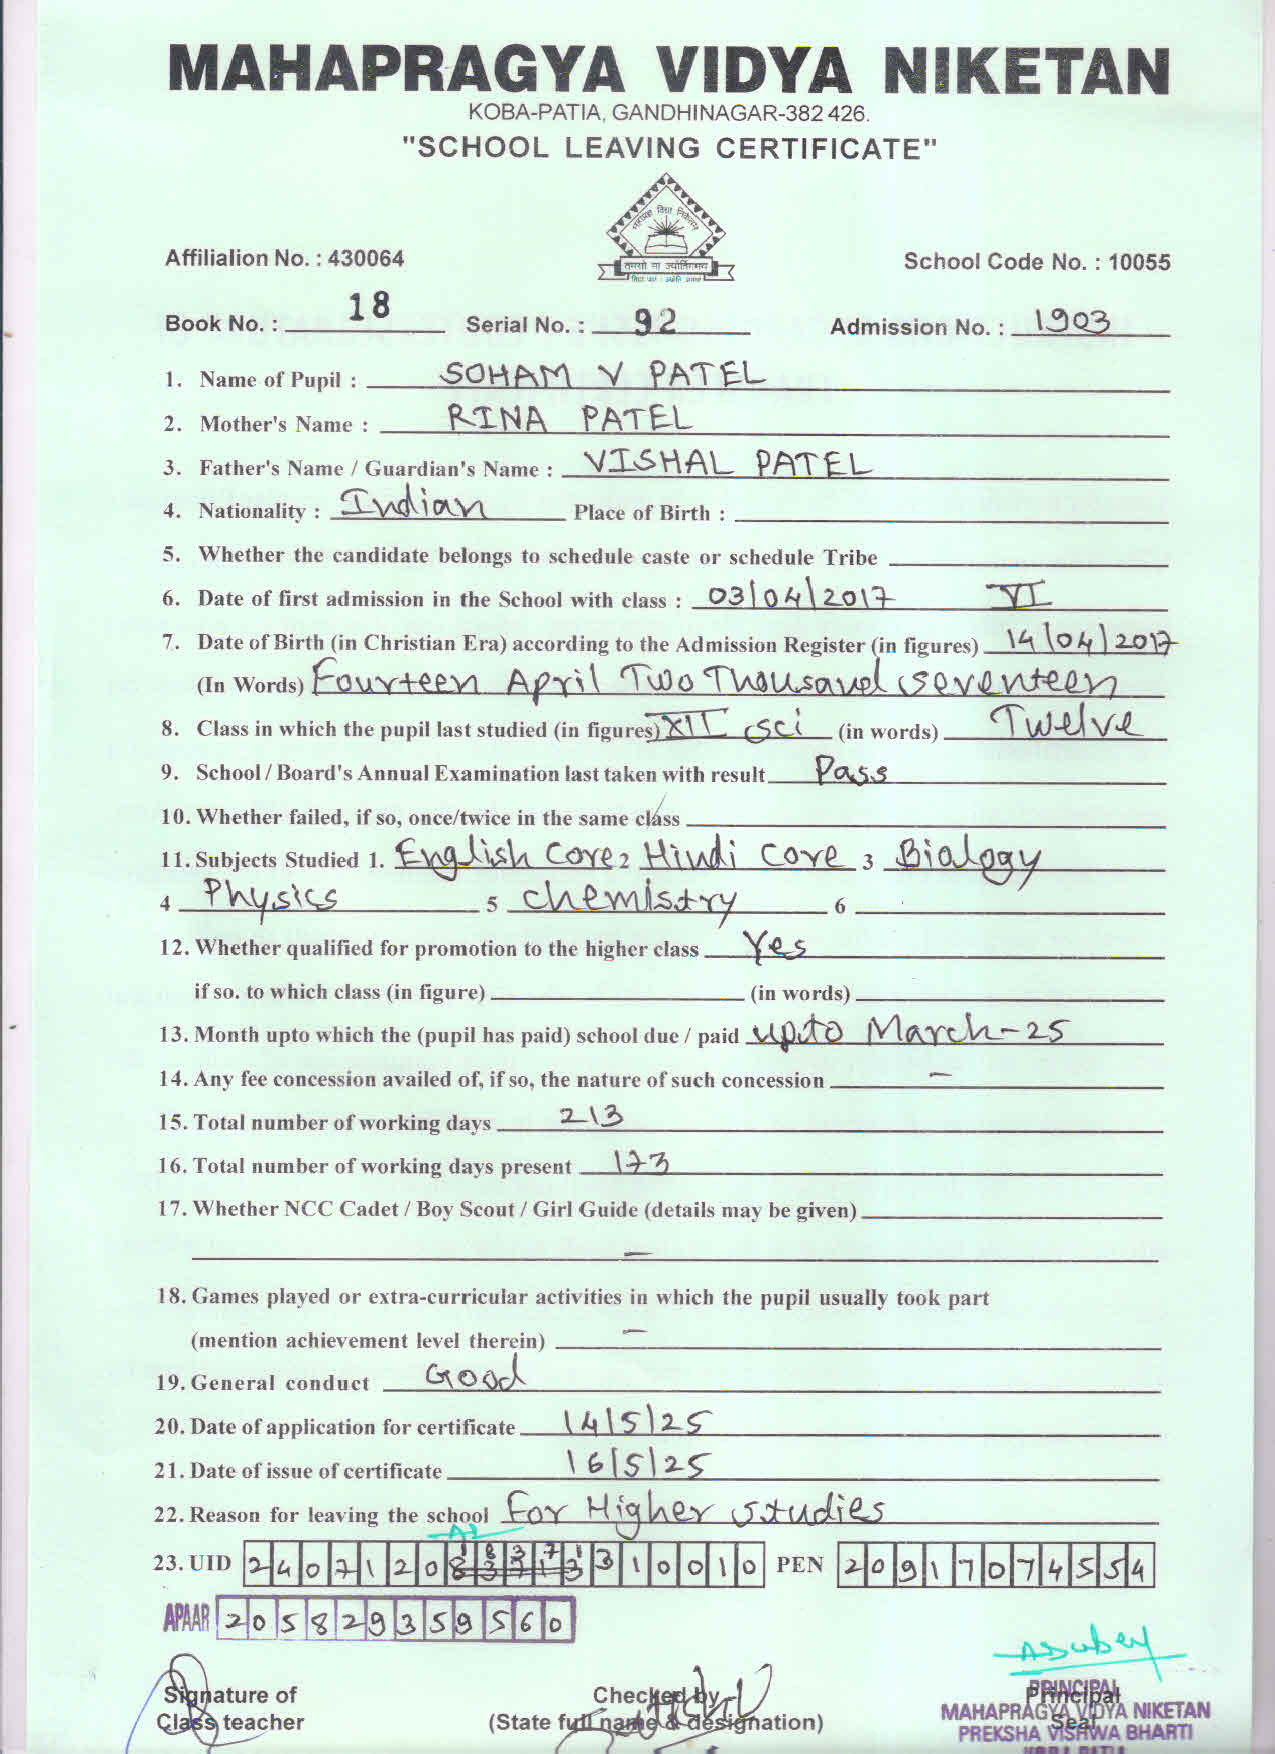 MAHAPRAGYA VIDYA NIKETAN
KOBA-PATIA, GANDHINAGAR-382 426.
"SCHOOL LEAVING CERTIFICATE"
महाप्रज्ञ विद्या निकेतन
तमसो मा ज्योतिर्गमय
Affilialion No. : 430064
School Code No. : 10055
Book No. : 18 Serial No. : 92 Admission No. : 1903
1. Name of Pupil : SOHAM V PATEL
2. Mother's Name : RINA PATEL
3. Father's Name / Guardian's Name : VISHAL PATEL
4. Nationality : Indian Place of Birth :
5. Whether the candidate belongs to schedule caste or schedule Tribe
6. Date of first admission in the School with class : 03/04/2017 VI
7. Date of Birth (in Christian Era) according to the Admission Register (in figures) 14/04/2017
(In Words) Fourteen April Two Thousand Seventeen
8. Class in which the pupil last studied (in figures) XII sci (in words) Twelve
9. School / Board's Annual Examination last taken with result Pass
10. Whether failed, if so, once/twice in the same class
11. Subjects Studied 1. English Core 2 Hindi Core 3 Biology
4 Physics 5 Chemistry 6
12. Whether qualified for promotion to the higher class Yes
if so. to which class (in figure) (in words)
13. Month upto which the (pupil has paid) school due / paid upto March-25
14. Any fee concession availed of, if so, the nature of such concession -
15. Total number of working days 213
16. Total number of working days present 173
17. Whether NCC Cadet / Boy Scout / Girl Guide (details may be given)
-
18. Games played or extra-curricular activities in which the pupil usually took part
(mention achievement level therein) -
19. General conduct Good
20. Date of application for certificate 14/5/25
21. Date of issue of certificate 16/5/25
22. Reason for leaving the school For Higher studies
23. UID 2407120 310010 PEN 20917074554
APAAR 205829359560
Signature of
Class teacher
Checked by
(State full name & designation)
Principal
Seal
PRINCIPAL
MAHAPRAGYA VIDYA NIKETAN
PREKSHA VISHWA BHARTI